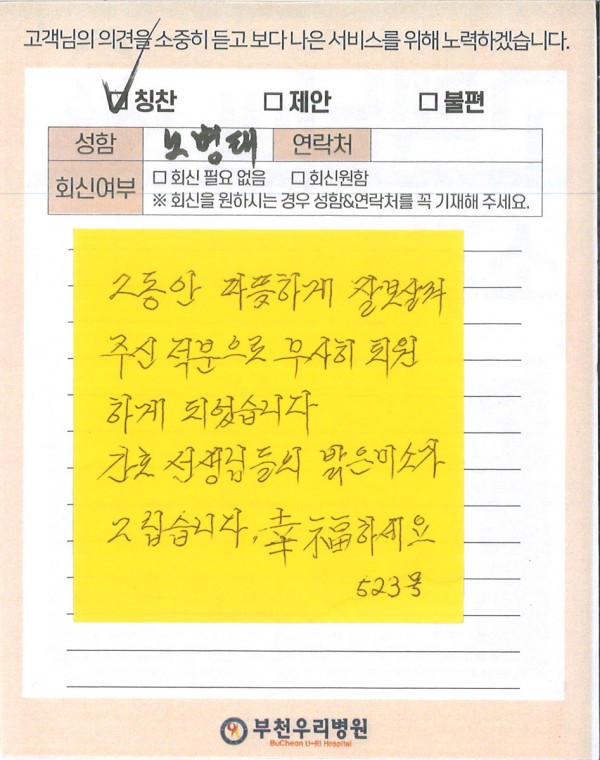 고객님의 의견을 소중히 듣고 보다 나은 서비스를 위해 노력하겠습니다.
☑ 칭찬 □ 제안 □ 불편
성함 노병태 연락처
회신여부 □ 회신 필요 없음 □ 회신원함
※ 회신을 원하시는 경우 성함&연락처를 꼭 기재해 주세요.
그동안 따뜻하게 잘보살펴
주신 덕분으로 무사히 퇴원
하게 되었습니다
간호 선생님들의 밝은미소가
그립습니다. 幸福하세요
523号
부천우리병원
BuCheon U-RI Hospital